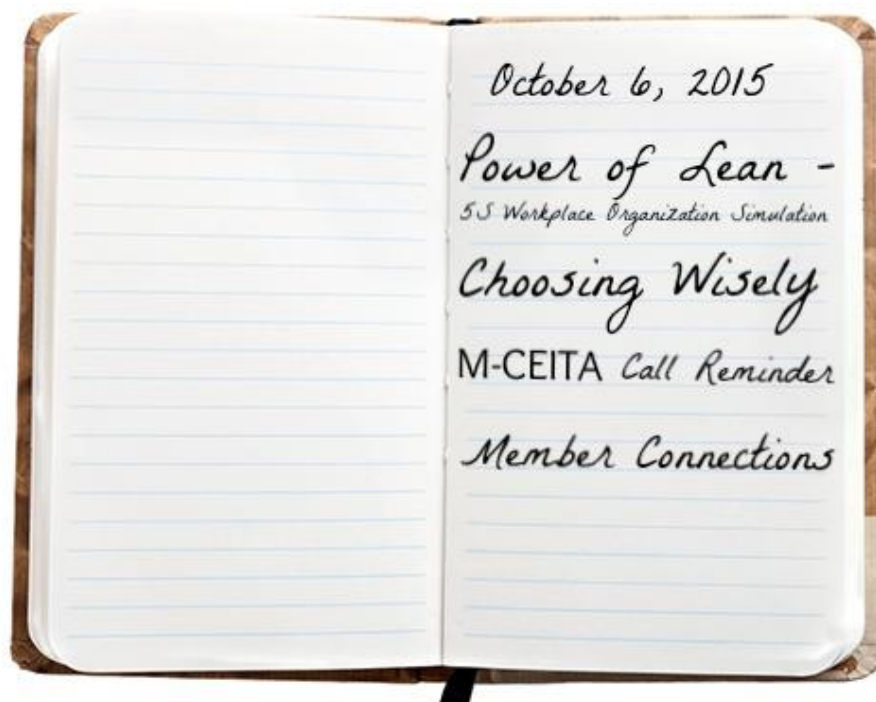 October 6, 2015
Power of Lean -
5S Workplace Organization Simulation
Choosing Wisely
M-CEITA Call Reminder
Member Connections